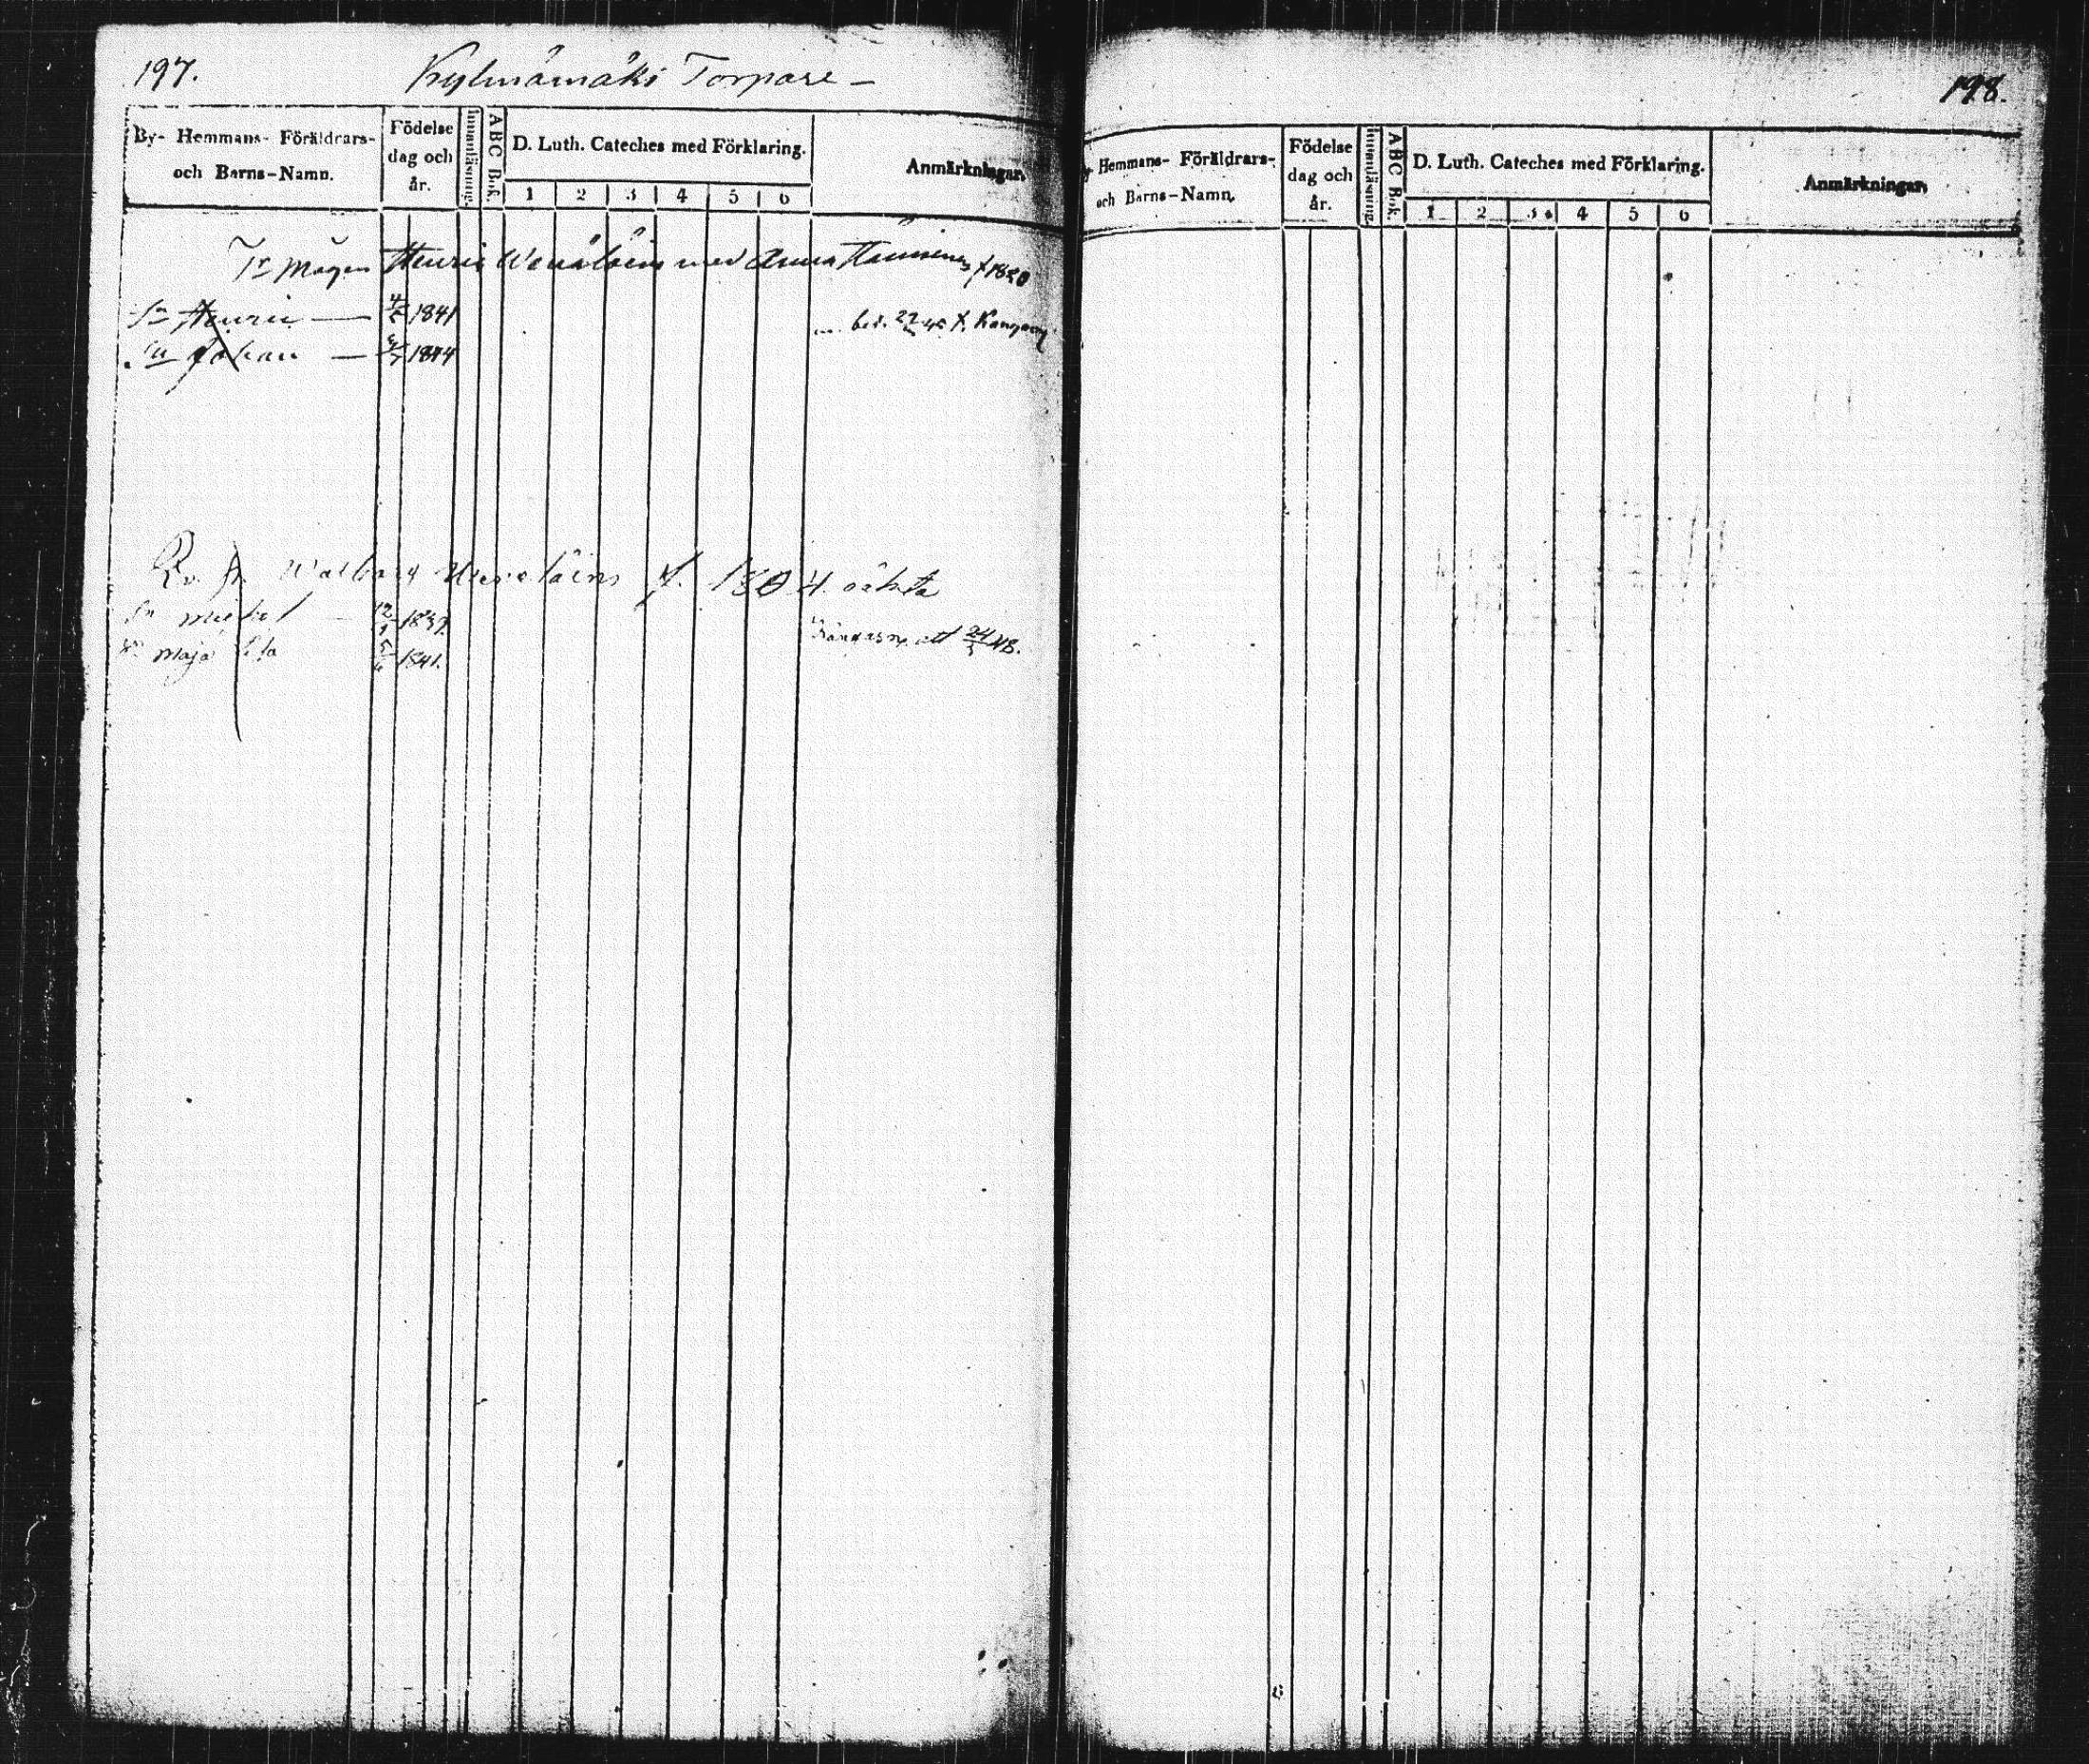 197.
Kylmämäki Torpare –
By- Hemmans- Föräldrars- och Barns-Namn.
Födelse dag och år.
Innanläsning.
ABC Bok.
D. Luth. Cateches med Förklaring.
1 2 3 4 5 6
Anmärkningar.
Tr Mågen Henric Wenäläin med Anna f 1820
Sn Henric — 1841
Sn Johan — 1844
Walborg f. 1804
Sn Michel 1839.
Maja Lisa 1841.
att 24/3 48.
198.
Hemmans- Föräldrars- och Barns-Namn.
Födelse dag och år.
Innanläsning.
ABC Bok.
D. Luth. Cateches med Förklaring.
1 2 3 4 5 6
Anmärkningar.